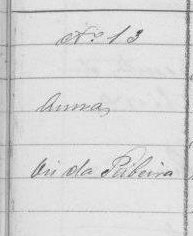 Nº 13
Anna,
Cri da Ribeira